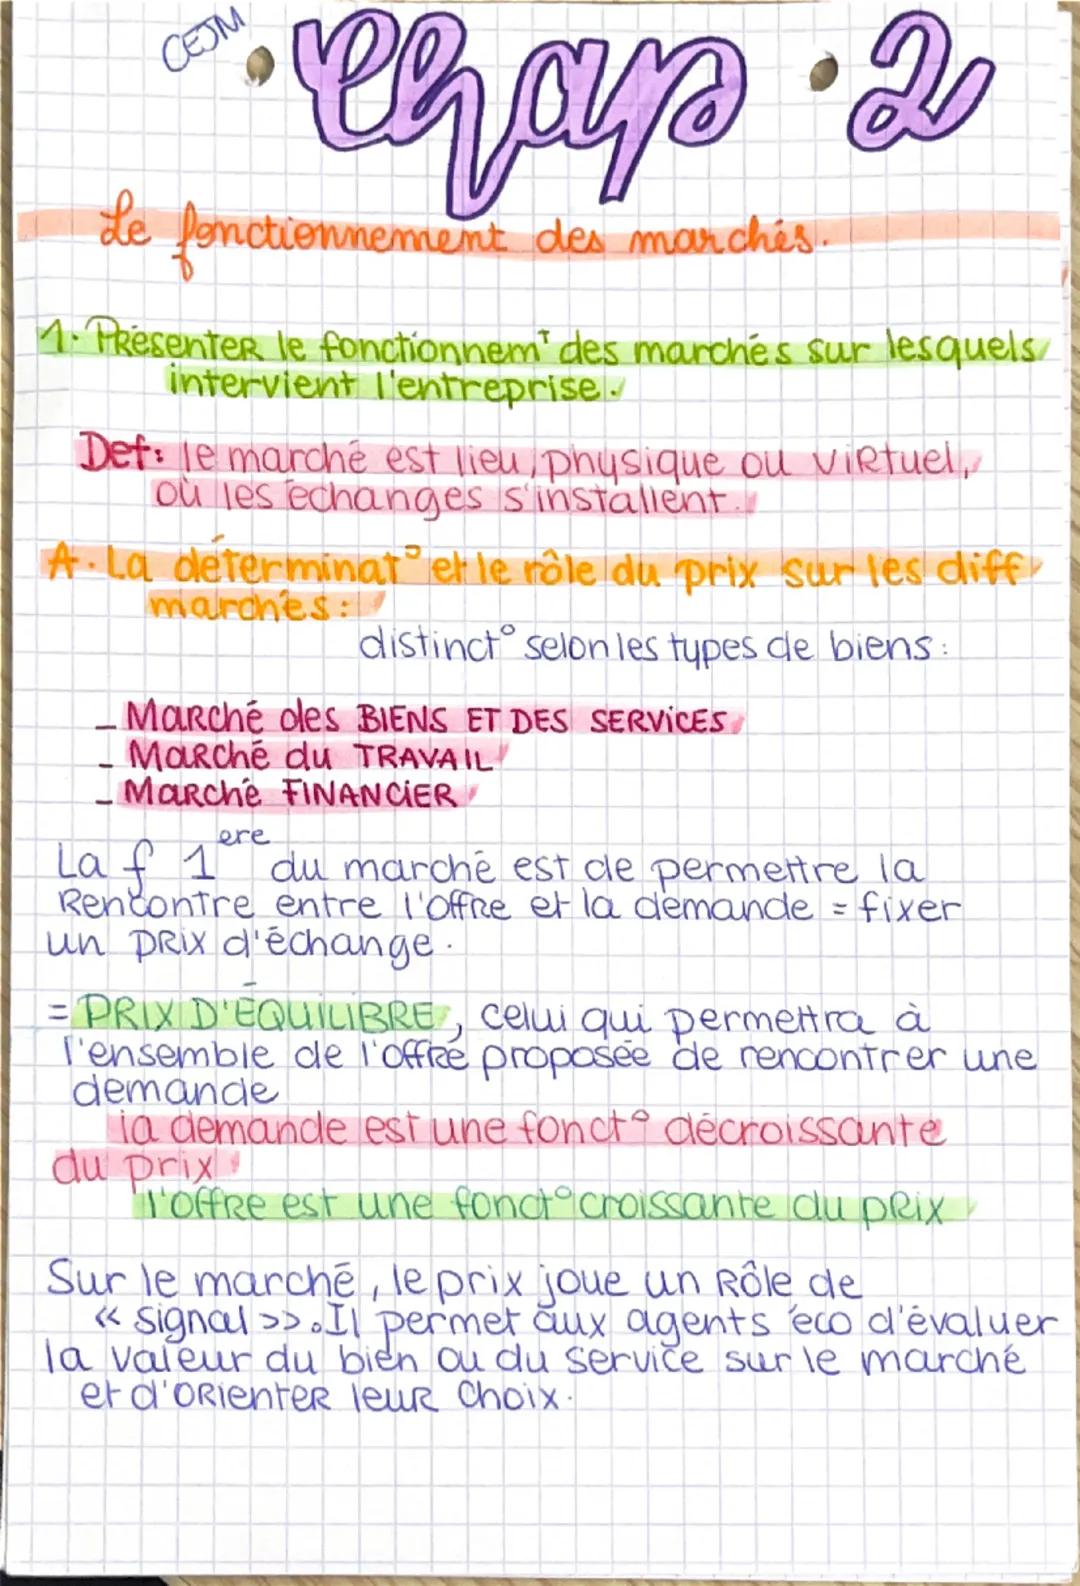 CEJM
Chap 2
Le fonctionnement des marchés.
1. Présenter le fonctionnemt des marchés sur lesquels
intervient l'entreprise.
Def: le marché est lieu, physique ou virtuel,
où les échanges s'installent.
A. La déterminat° et le rôle du prix sur les diff
marchés:
distinct° selon les types de biens:
- Marché des BIENS ET DES SERVICES
- Marché du TRAVAIL
- Marché FINANCIER
La f 1ere du marché est de permettre la
Rencontre entre l'offre et la demande = fixer
un prix d'échange.
= PRIX D'ÉQUILIBRE, celui qui permettra à
l'ensemble de l'offre proposée de rencontrer une
demande
la demande est une fonct° décroissante
du prix
l'offre est une fonct° croissante du prix
Sur le marché, le prix joue un Rôle de
« signal ». Il permet aux agents éco d'évaluer
la valeur du bien ou du service sur le marché
et d'orienter leur choix.